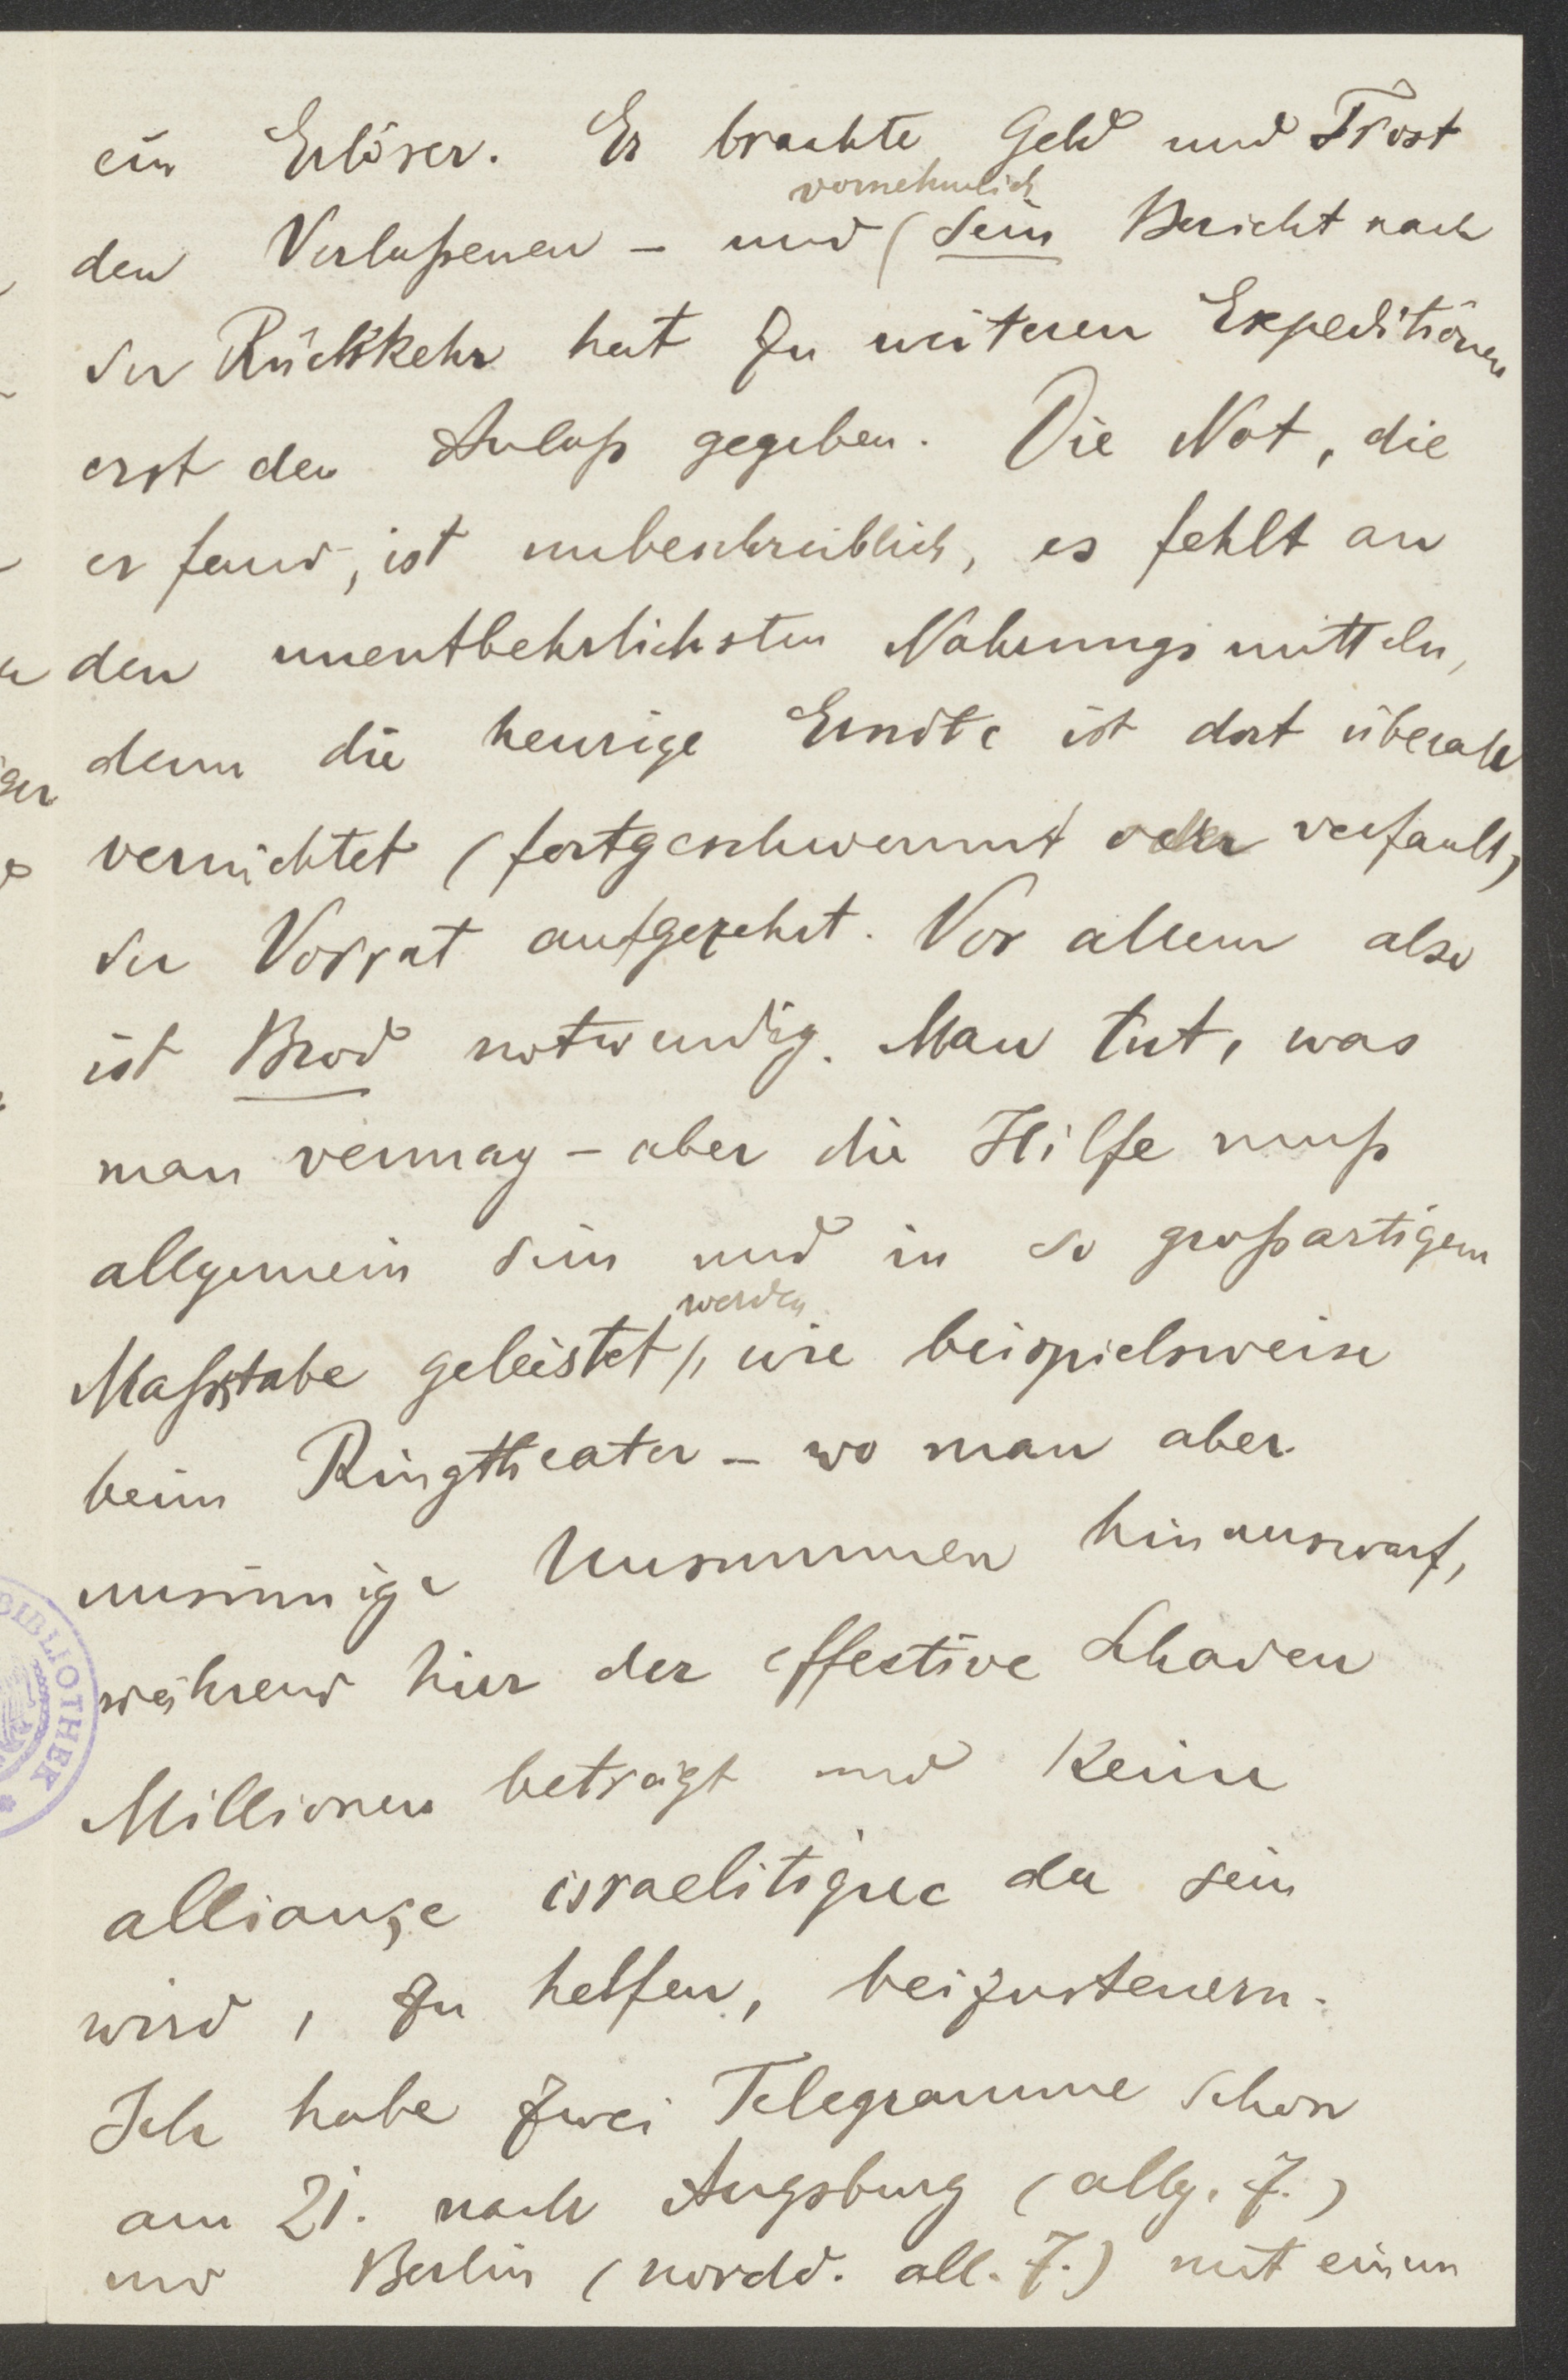 ein Erlöser. Er brachte Geld und Trost
vornehmlich
den Verlaßenen – und ( sein Bericht nach
der Rückkehr hat zu weiteren Expeditionen
erst den Anlaß gegeben. Die Not, die
er fand, ist unbeschreiblich, es fehlt an
den unentbehrlichsten Nahrungsmitteln,
denn die heurige Erndte ist dort überall
vernichtet (fortgeschwemmt oder verfault,
der Vorrat aufgezehrt. Vor allem also
ist Brod notwendig. Man tut, was
man vermag – aber die Hilfe muß
allgemein sein und in so großartigem
werden
Maßstabe geleistet /, wie beispielsweise
beim Ringtheater – wo man aber
unsinnige Unsummen hinauswarf,
während hier der effective Schaden
Millionen beträgt und keine
allianze israelitique da sein
wird, zu helfen, beizusteuern.
Ich habe zwei Telegramme schon
am 21. nach Augsburg (allg. Z.)
und Berlin (nordd. all. Z.) mit einem
BIBLIOTHEK